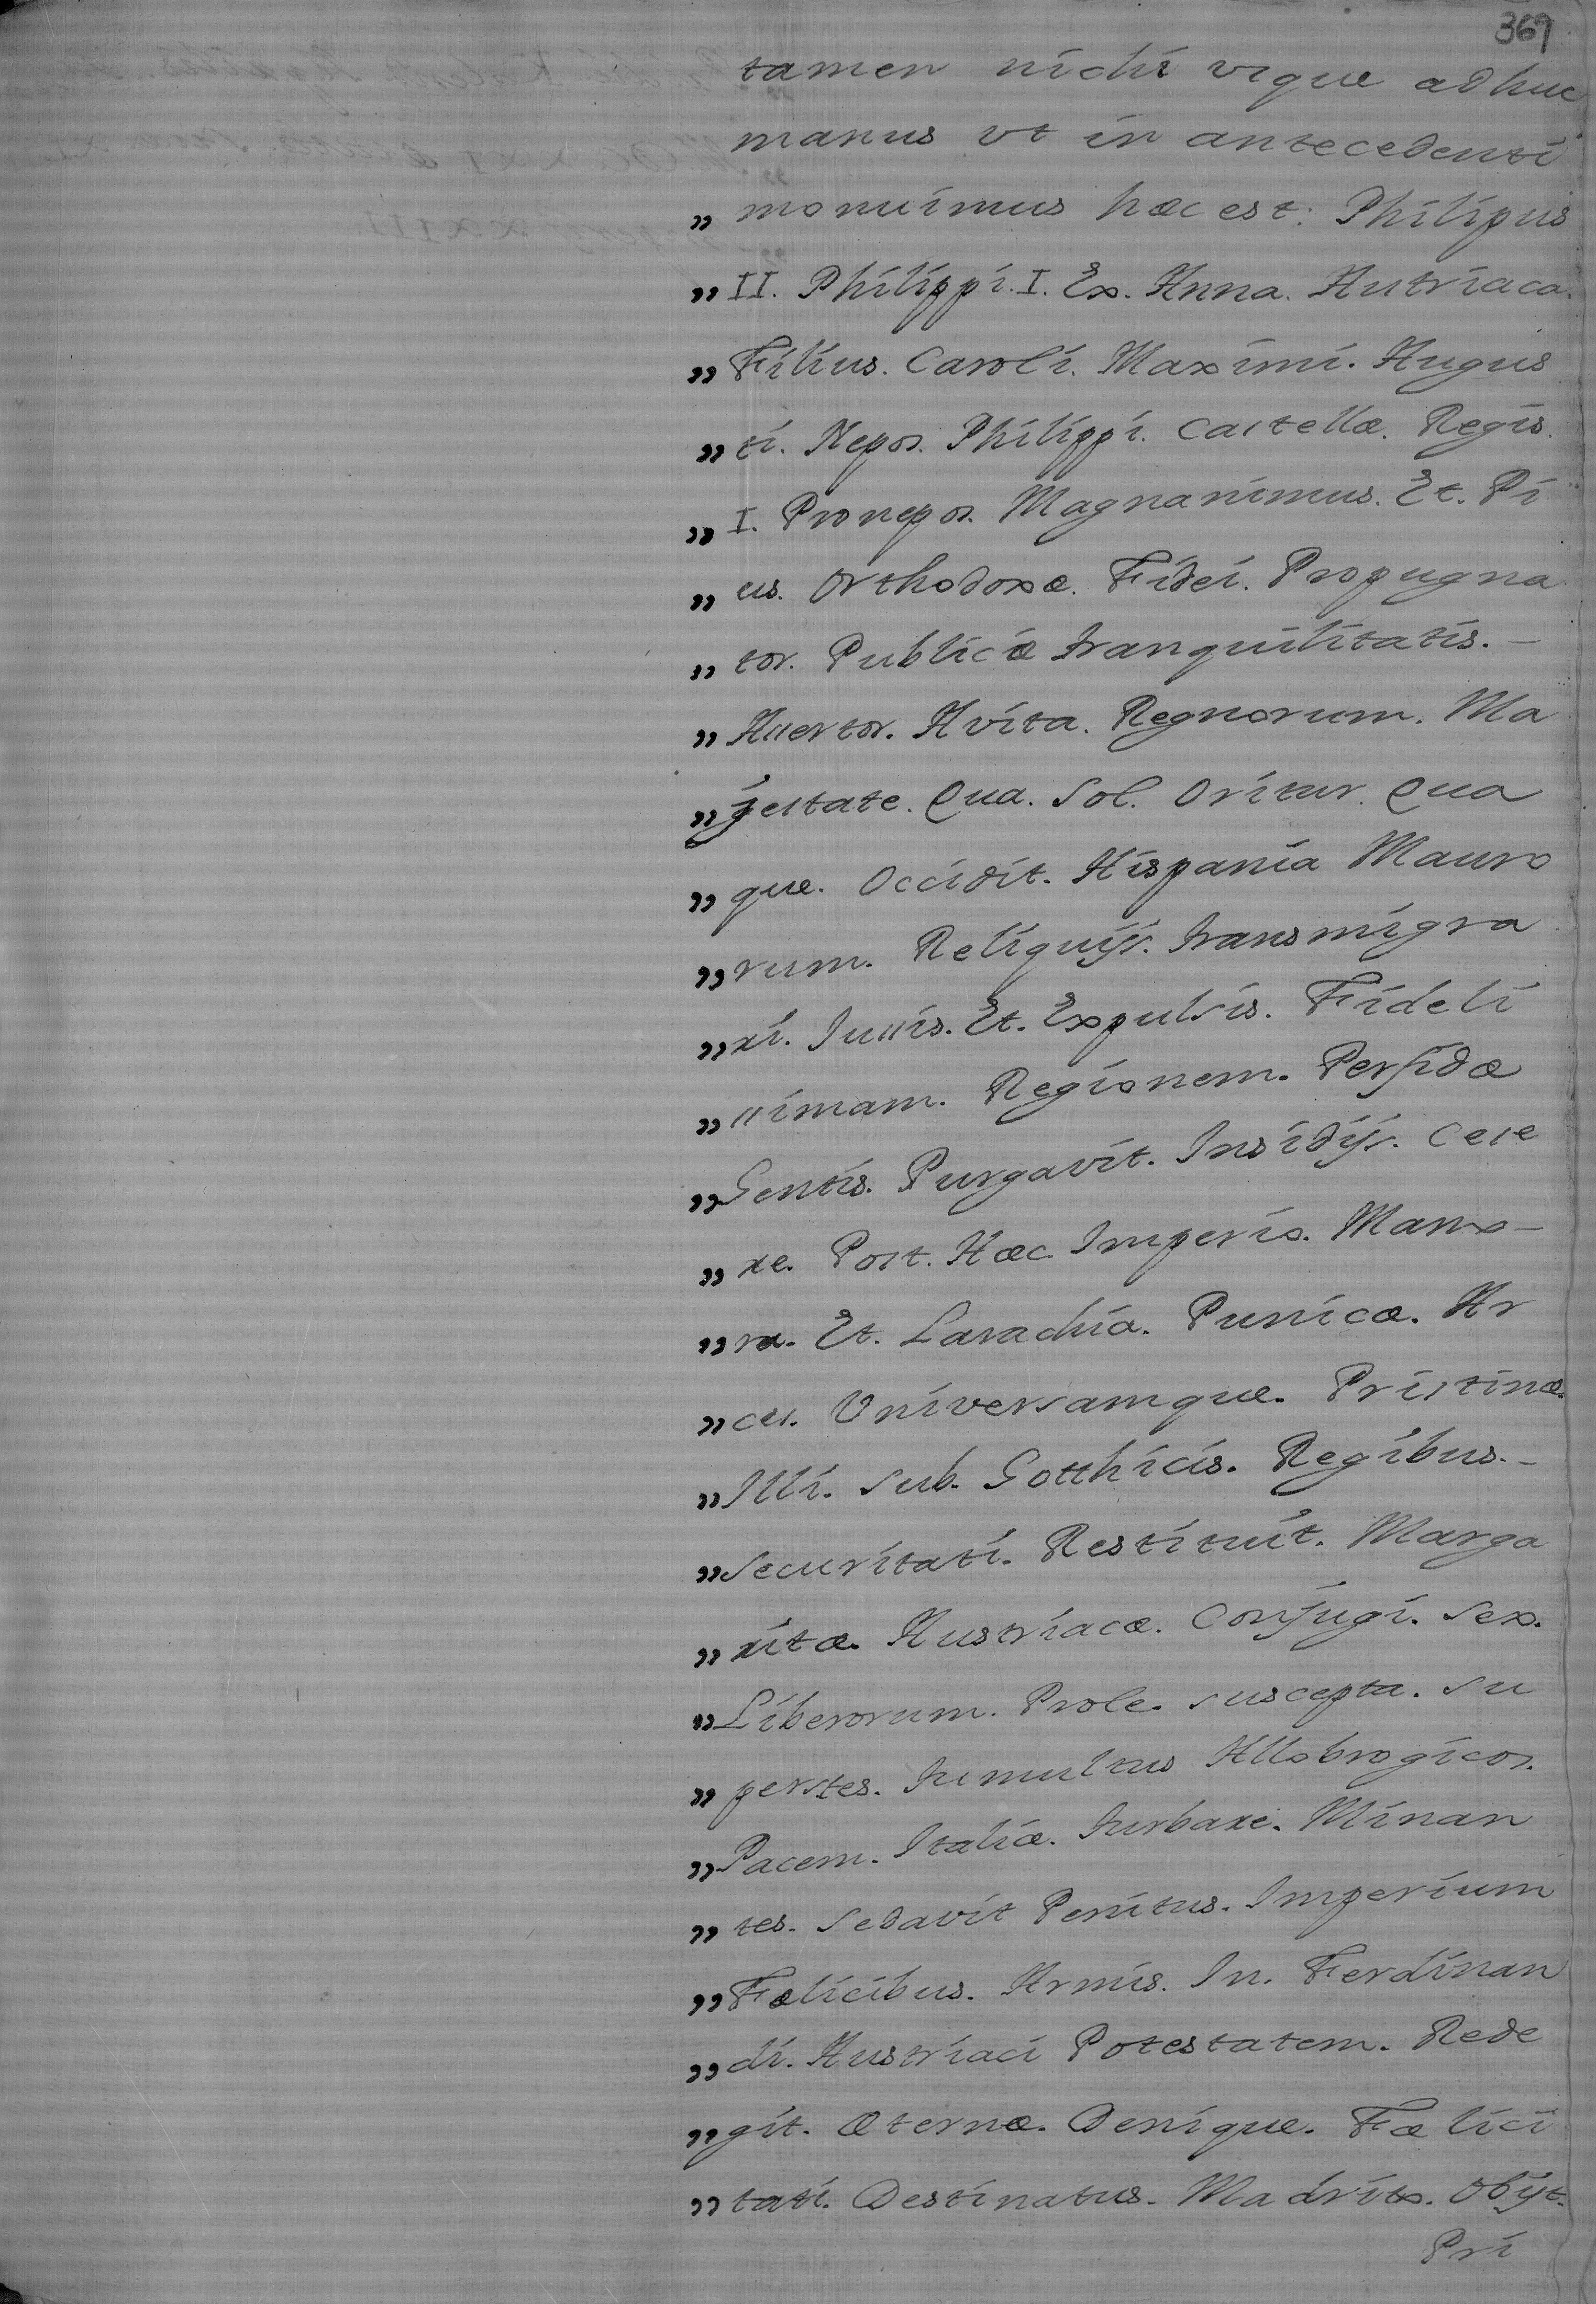 369
tamen nichi vsque adhuc
manus vt in antecedenti
„ monuimus hæc est: Philipus
„ II. Philippi. I. Ex. Anna. Autriaca.
„ Filius. Caroli. Maximi. Augus
„ ti. Nepos. Philippi. Castellæ. Regis.
„ I. Pronepos. Magnanimus. Et. Pi
„ us. Orthodoxæ. Fidei. Propugna
„ tor. Publicæ tranquilitatis. —
„ Assertor. Avita. Regnorum. Ma
„ jestate. Qua. Sol. Oritur. Qua
„ que. Occidit. Hispania Mauro
„ rum. Reliquijs. transmigra
„ ri. Jussis. Et. Expulsis. Fideli
„ ssimam. Regionem. Perfidæ
„ Gentis. Purgavit. Insidijs. Cese
„ re. Post. Hæc. Imperio. Mamo—
„ ra. Et. Larachia. Punicæ. Ar
„ ces. Universamque. Pristinæ.
„ Illi. Sub. Gotthicis. Regibus. —
„ securitati. Restituit. Marga
„ ritæ. Austriacæ. Conjugi. Sex.
„ Liberorum. Prole. suscepta. Su
„ perstes. tumultus Allobrogicos.
„ Pacem. Italiæ. turbare. Minan
„ tes. Sedavit Penitus. Imperium
„ Fælicibus. Armis. In. Ferdinan
„ di. Austriaci Potestatem. Rede
„ git. Æternæ. Denique. Fælici
„ tati. Destinatus. Madrito. Obijt.
Pri